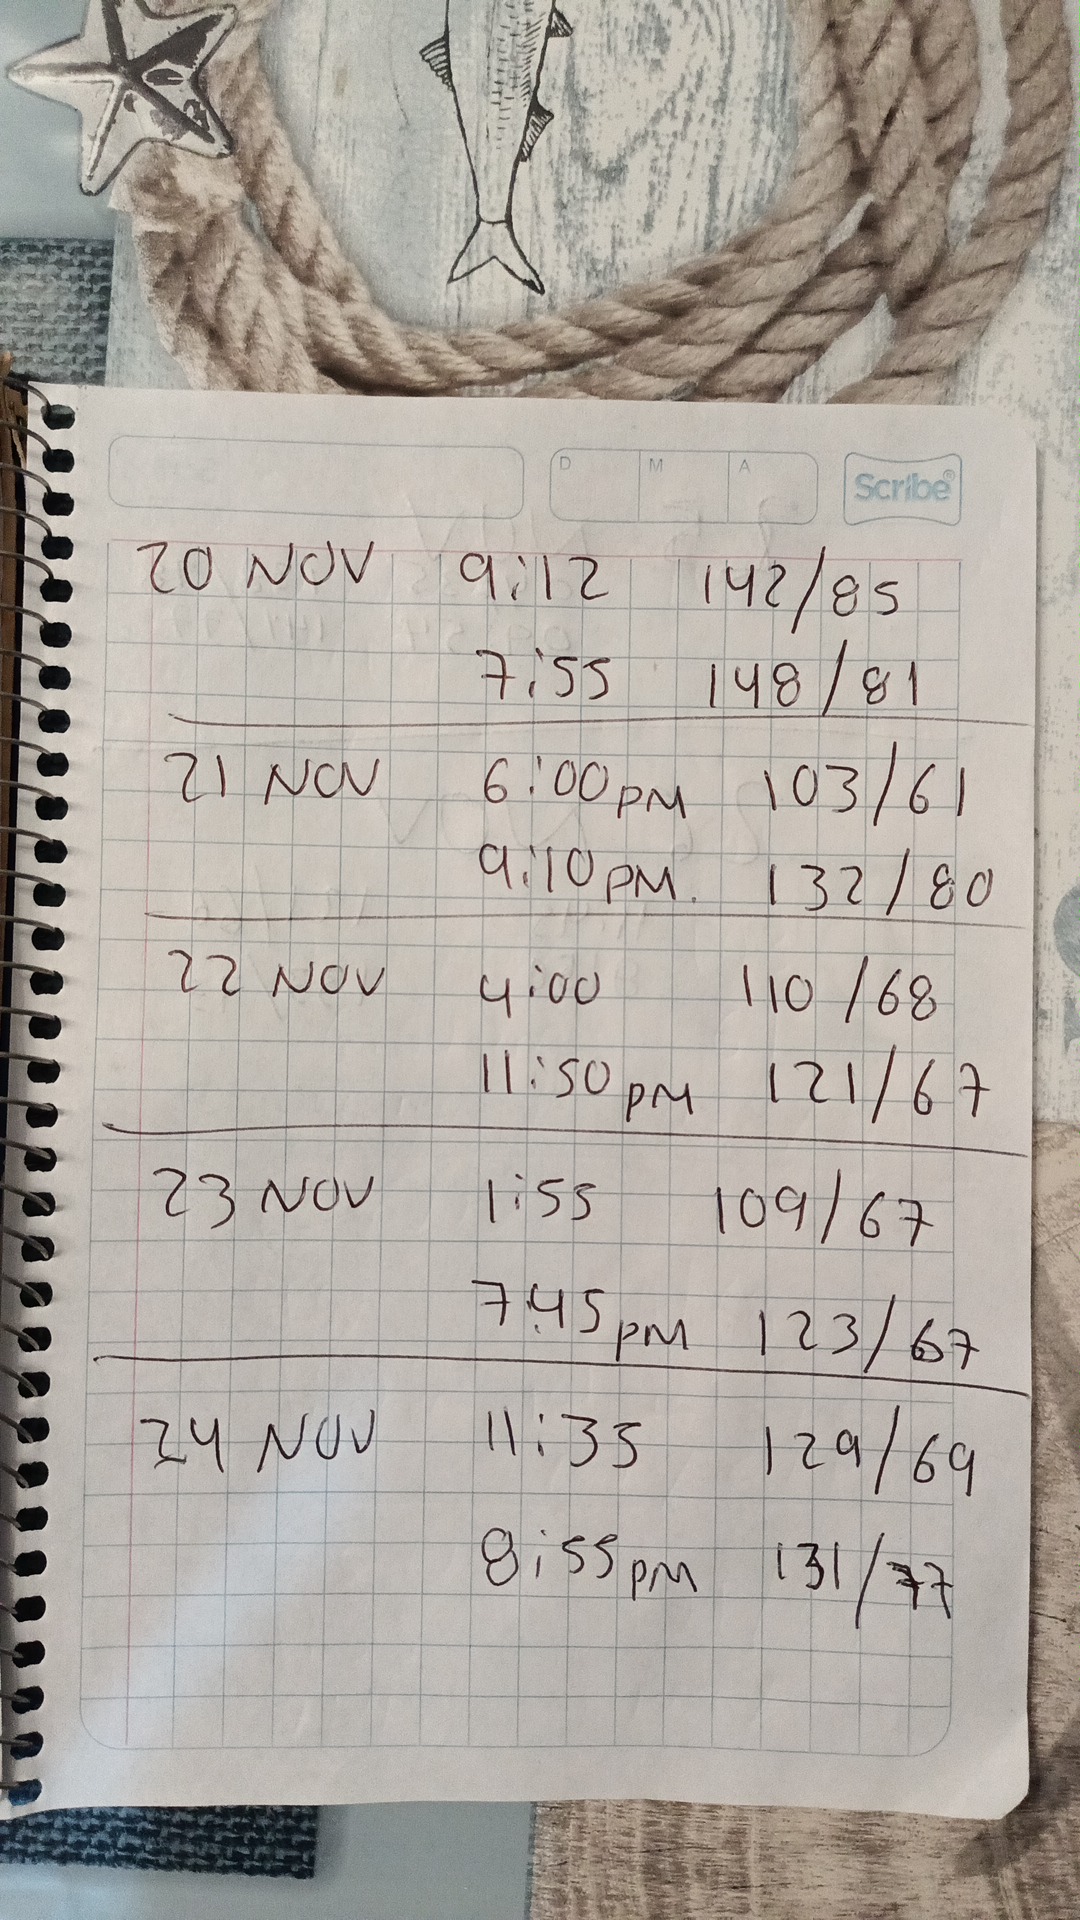 D M A Scribe®
20 NOV 9:12 142/85
7:55 148/81
21 NOV 6:00 PM 103/61
9:10 PM. 132/80
22 NOV 4:00 110/68
11:50 PM 121/67
23 NOV 1:55 109/67
7:45 PM 123/67
24 NOV 11:35 129/69
8:55 PM 131/77